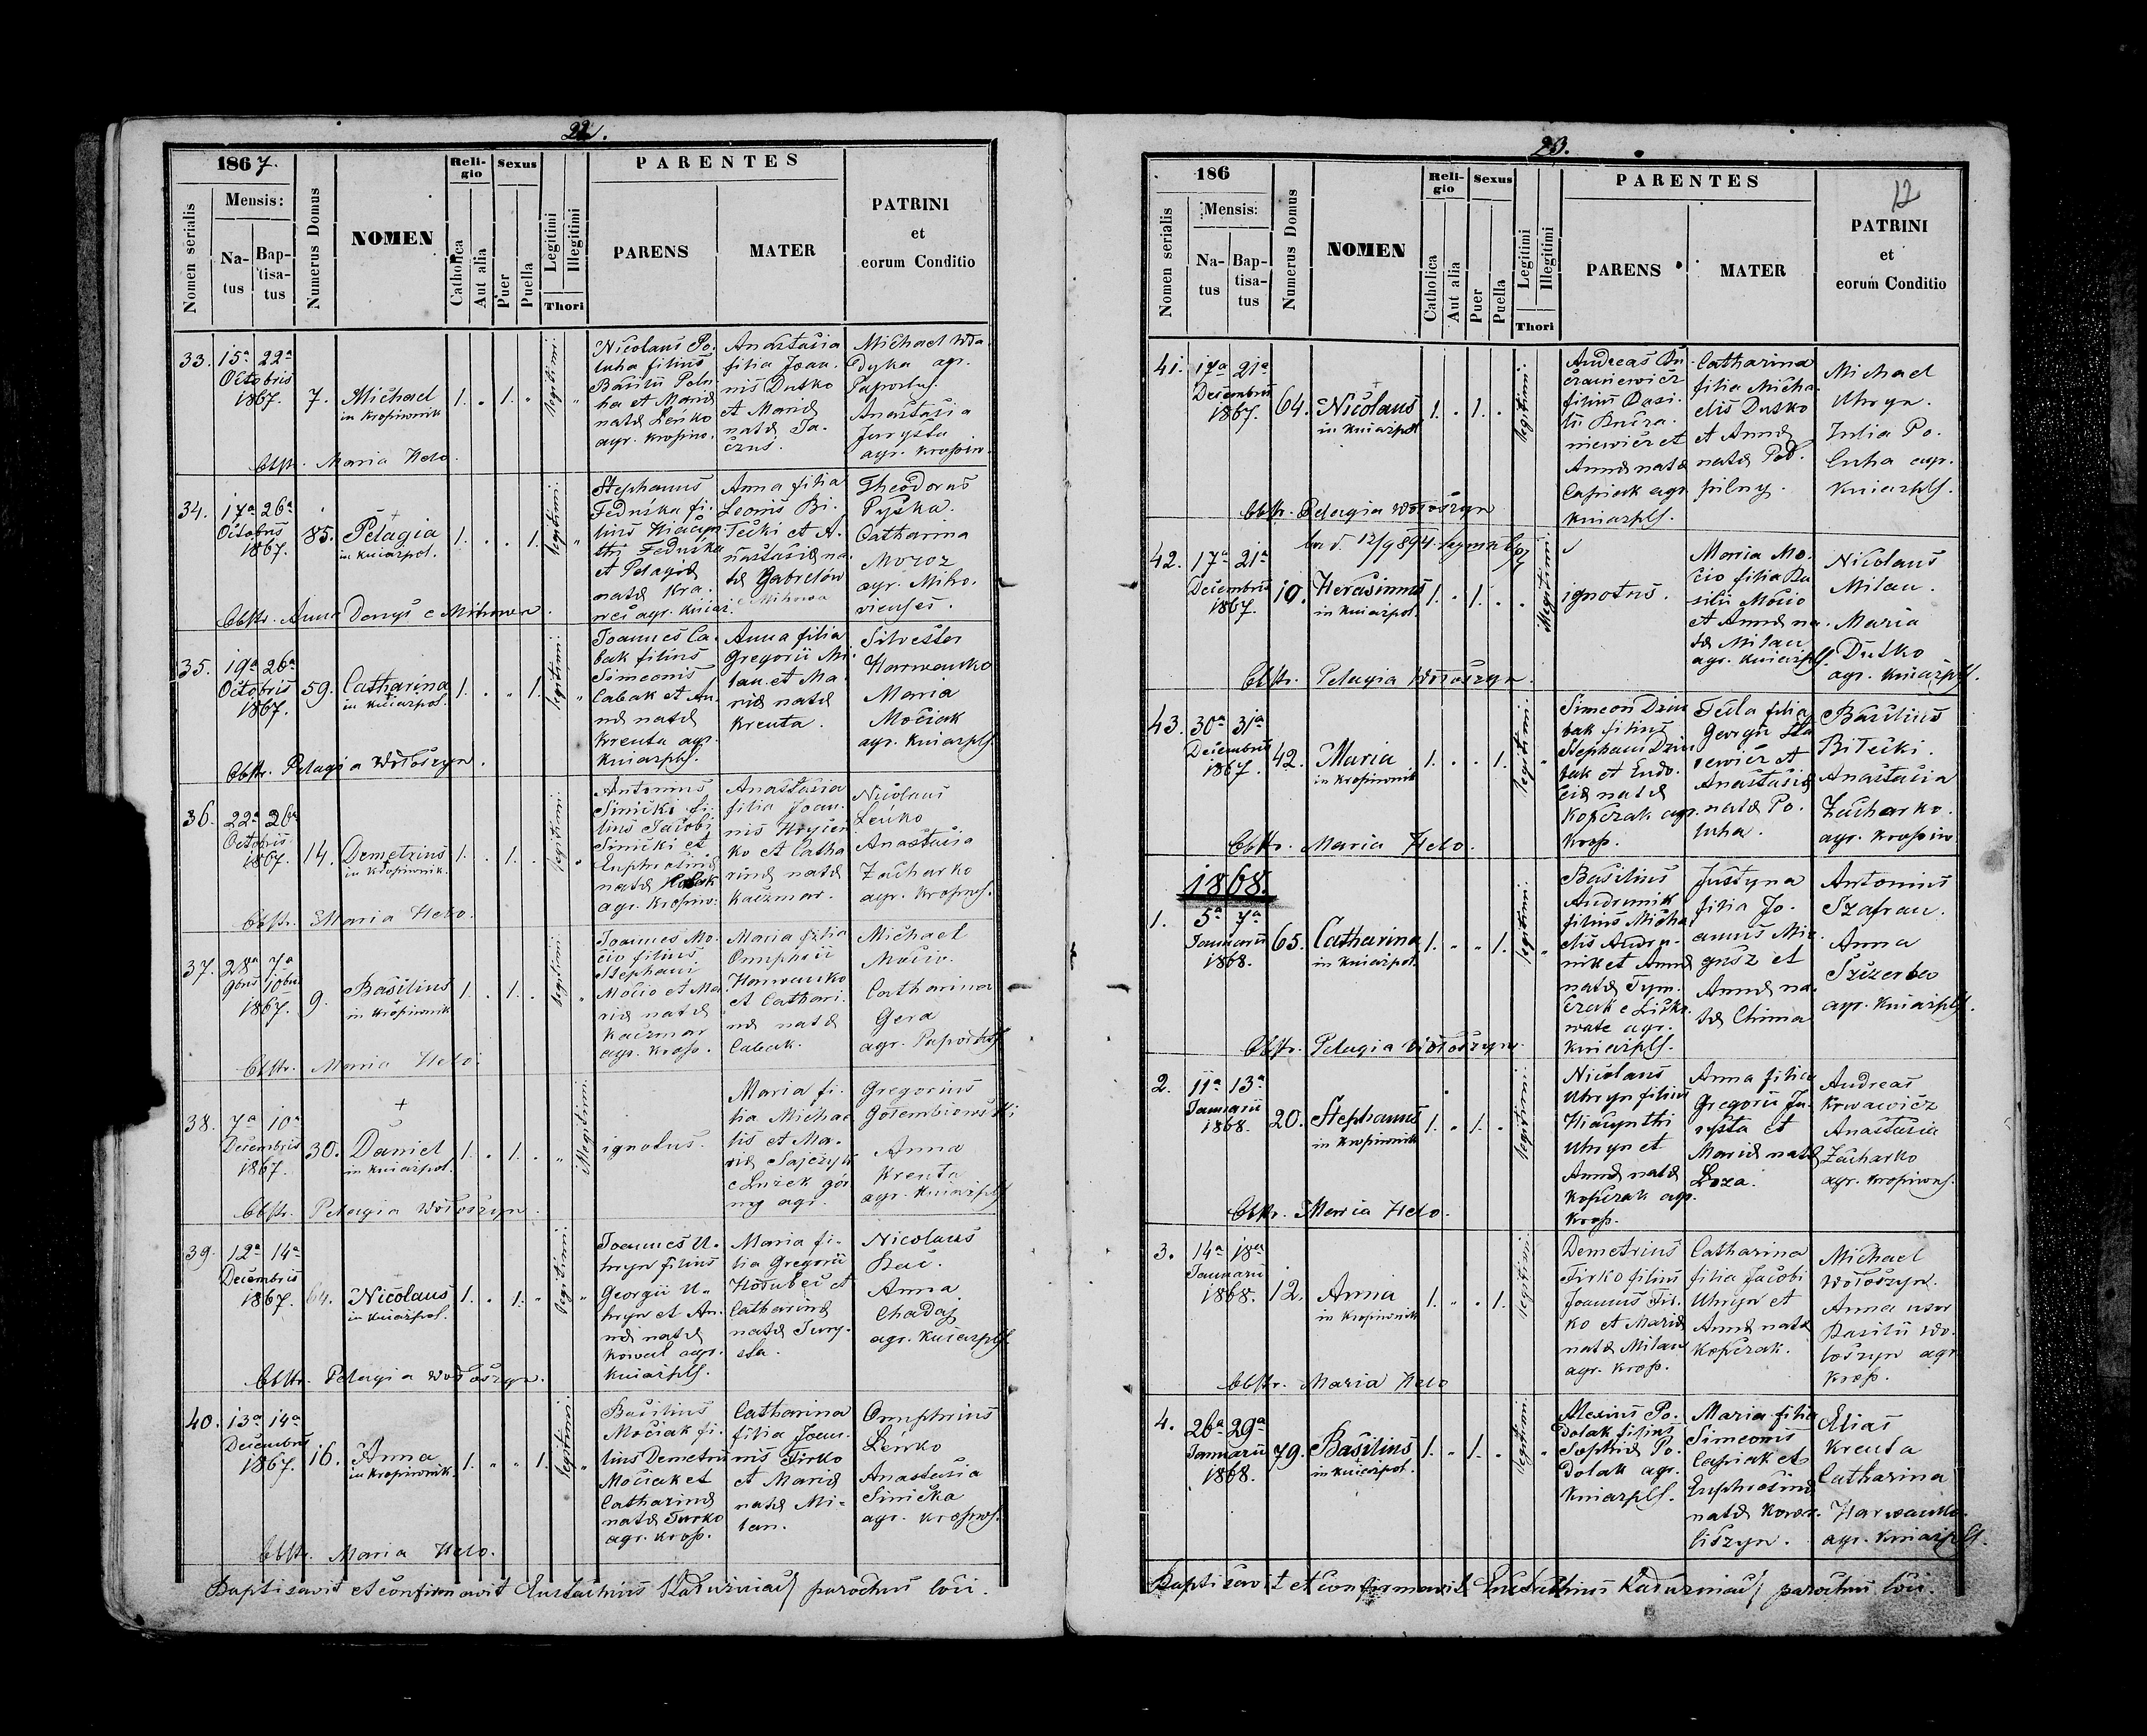 22.
1867.
Nomen serialis
Mensis:
Natus
Baptisatus
Numerus Domus
NOMEN
Religio
Catholica
Aut alia
Sexus
Puer
Puella
Legitimi
Illegitimi
Thori
PARENTES
PARENS
MATER
PATRINI
et
eorum Conditio
33. 15a 22a
Octobris
1867.
7.
Michael
in Kropiwnik
1. „ 1. „
legitimi.
Nicolaus Po-
luha filius
Basilii Polu-
ha et Mariæ
natæ Leńko
agr. Kropiw.
Anastasia
filia Joan-
nis Dutko
et Mariæ
natæ Ja-
Michael
agr.
Anastasia
Jurysta
agr. Kropiw.
Obstr. Maria Helo.
34. 17a 26a
Octobris
1867.
85.
Pelagia
in Kniażpol.
1. . . 1.
legitimi.
Stephanus
Feduśka fi-
lius Hiacyn-
thi Feduśka
et Pelagiæ
natæ
Anna filia
Leonis Bi-
łecki et A-
nastasiæ na-
tæ Gabrelów
Theodorus
Pyśka.
Catharina
Moroz
agr. Miho-
vienses.
Obstr. Anna Denys e Mihowa.
35. 19a 26a
Octobris
1867.
59.
Catharina
in Kniażpol.
1. . „ 1.
legitimi.
Joannes Ca-
bak filius
Simeonis
Cabak et An-
næ natæ
Kreuta agr.
Kniażpls.
Anna filia
Gregorii Mi-
lan et Ma-
riæ natæ
Kreuta.
Silvester
Harwanko
Maria
Mociak
agr. Kniażpls.
Obstr. Pelagia Wołoszyn.
36. 22a 26a
Octobris
1867.
14.
Demetrius
in Kropiwnik.
1. . 1. .
legitimi.
Antonius
Sinicki fi-
lius Jacobi
Sinicki et
Euphrosinæ
natæ
agr. Kropiw.
Anastasia
filia Joan-
nis Hrycen-
ko et Catha
rinæ natæ
Kaczmar.
Nicolaus
Leńko
Anastasia
Zacharko
agr. Kropiws.
Obstr. Maria Helo.
37. 28a 7a
9bris 10bris
1867.
9.
Basilius
in Kropiwnik
1. . 1. .
legitimi.
Joannes Mo-
cio filius
Stephani
Mocio et Ma-
riæ natæ
Kaczmar
agr. Krop.
Maria filia
Onuphrii
Harwanko
et Cathari-
næ natæ
Cabak.
Michael
Mocio.
Catharina
Gera
agr.
Obstr. Maria Helo.
38. 7a 10a
Decembris
1867.
30.
Daniel
in Kniażpol.
1. . 1. . „
Illegitimi.
ignotus.
Maria fi-
lia Michae
lis et Ma-
riæ Sajczyk
e Lużek gór
ny agr.
Gregorius
Gołembiowski
Anna
Kreuta
agr. Kniażpls
Obstr. Pelagia Wołoszyn.
39. 12a 14a
Decembris
1867.
64.
Nicolaus
in Kniażpol.
1. . 1. „
legitimi.
Joannes U-
hryn filius
Georgii U-
hryn et An-
næ natæ
Kowal agr.
Kniażpls.
Maria fi-
lia Gregorii
Hołubec et
Catharinæ
natæ Jury-
sta.
Nicolaus
Anna
Chaday
agr. Kniażpls
Obstr. Pelagia Wołoszyn.
40. 13a 14a
Decembris
1867.
16.
Anna
in Kropiwnik.
1. „ „ 1.
legitimi.
Basilius
Mociak fi-
lius Demetrii
Mociak et
Catharinæ
natæ Turko
agr. Krop.
Catharina
filia Joan-
nis Firko
et Mariæ
natæ Mi-
lan.
Onuphrius
Leńko
Anastasia
Sinicka
agr. Kropiws.
Obstr. Maria Helo.
Baptisavit et confirmavit Eustachius Kaduniacz parochus loci.
23.
12
186
Nomen serialis
Mensis:
Natus
Baptisatus
Numerus Domus
NOMEN
Religio
Catholica
Aut alia
Sexus
Puer
Puella
Legitimi
Illegitimi
Thori
PARENTES
PARENS
MATER
PATRINI
et
eorum Conditio
41. 17a 21a
Decembris
1867.
64.
Nicolaus
in Kniażpol
1. . 1. .
legitimi.
Andreas
filius Basi-
lii
niewicz et
Annæ natæ
Capiak agr
Kniażpls.
Catharina
filia Micha-
elis Dutko
et Annæ
natæ Pod-
pilny.
Michael
Uhryn.
Julia Po-
luha agr.
Kniażpls.
Obstr. Pelagia Wołoszyn
42. 17a 21a
Decembris
1867.
10.
Herasimus
in Kniażpol.
1. . 1. . .
Illegitimi.
ignotus.
Maria Mo-
cio filia Ba
silii Mocio
et Annæ na-
tæ Milan
agr. Kniażpls.
Nicolaus
Milan.
Maria
Dutko
agr. Kniażpls.
Obstr. Pelagia Wołoszyn.
43. 30a 31a
Decembris
1867.
42.
Maria
in Kropiwnik
1. . . 1.
legitimi.
Simeon Dziu
bak filius
Stephani Dziu
bak et Eudo-
ciæ natæ
Kopczak agr.
Krop.
Tecla filia
Georgii
et
Anastasiæ
natæ Po-
luha.
Basilius
Biłecki.
Anastasia
Zacharko.
agr. Kropiw.
Obstr. Maria Helo.
1868.
1. 5a 7a
Januarii
1868.
65.
Catharina
in Kniażpol.
1. „ „ 1.
legitimi.
Basilius
Andrunik
filius Micha
elis Andru-
nik et Annæ
natæ Tym-
czak e
agr.
Kniażpls.
Justyna
filia Jo-
annis
et
Annæ na-
tæ Chima
Antonius
Szafran.
Anna
Szczerba
agr. Kniażpls.
Obstr. Pelagia Wołoszyn.
2. 11a 13a
Januarii
1868.
20.
Stephanus
in Kropiwnik
1. . 1. .
legitimi.
Nicolaus
Uhryn filius
Hiacynthi
Uhryn et
Annæ natæ
Kopczak agr.
Krop.
Anna filia
Gregorii Ju-
rysta et
Mariæ natæ
Loza.
Andreas
Krwawicz
Anastasia
Zacharko
agr. Kropiwns.
Obstr. Maria Helo.
3. 14a 18a
Januarii
1868.
12.
Anna
in Kropiwnik
1. „ . 1.
legitimi.
Demetrius
Firko filius
Joannis Fir-
ko et Mariæ
natæ Milan
agr. Krop.
Catharina
filia Jacobi
Uhryn et
Annæ natæ
Kopczak.
Michael
Wołoszyn.
Anna uxor
Basilii Wo-
łoszyn agr
Krop.
Obstr. Maria Helo
4. 26a 29a
Januarii
1868.
79.
Basilius
in Kniażpol.
1. . 1. .
legitimi.
Alexius Po-
dolak filius
Sophiæ Po-
dolak agr.
Kniażpls.
Maria filia
Simeonis
Capiak et
Euphrosinæ
natæ Kowa-
liszyn.
Elias
Kreuta
Catharina
Harwanko.
agr. Kniażpls.
Baptisavit et confirmavit Eustachius Kaduniacz parochus loci.